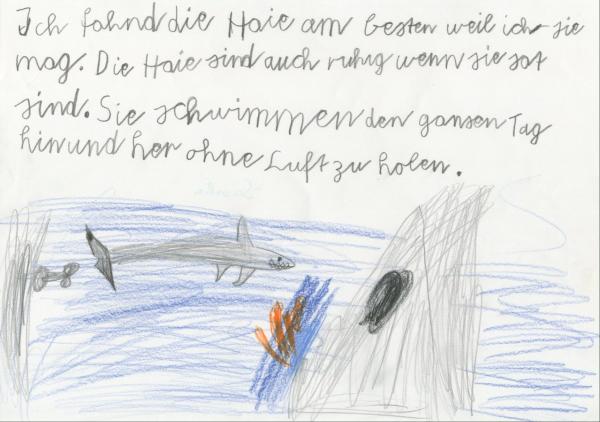 Ich fahnd die Haie am besten weil ich sie
mag. Die Haie sind auch ruhig wenn sie sat
sind. Sie schwimmen den gansen Tag
hin und her ohne Luft zu holen.